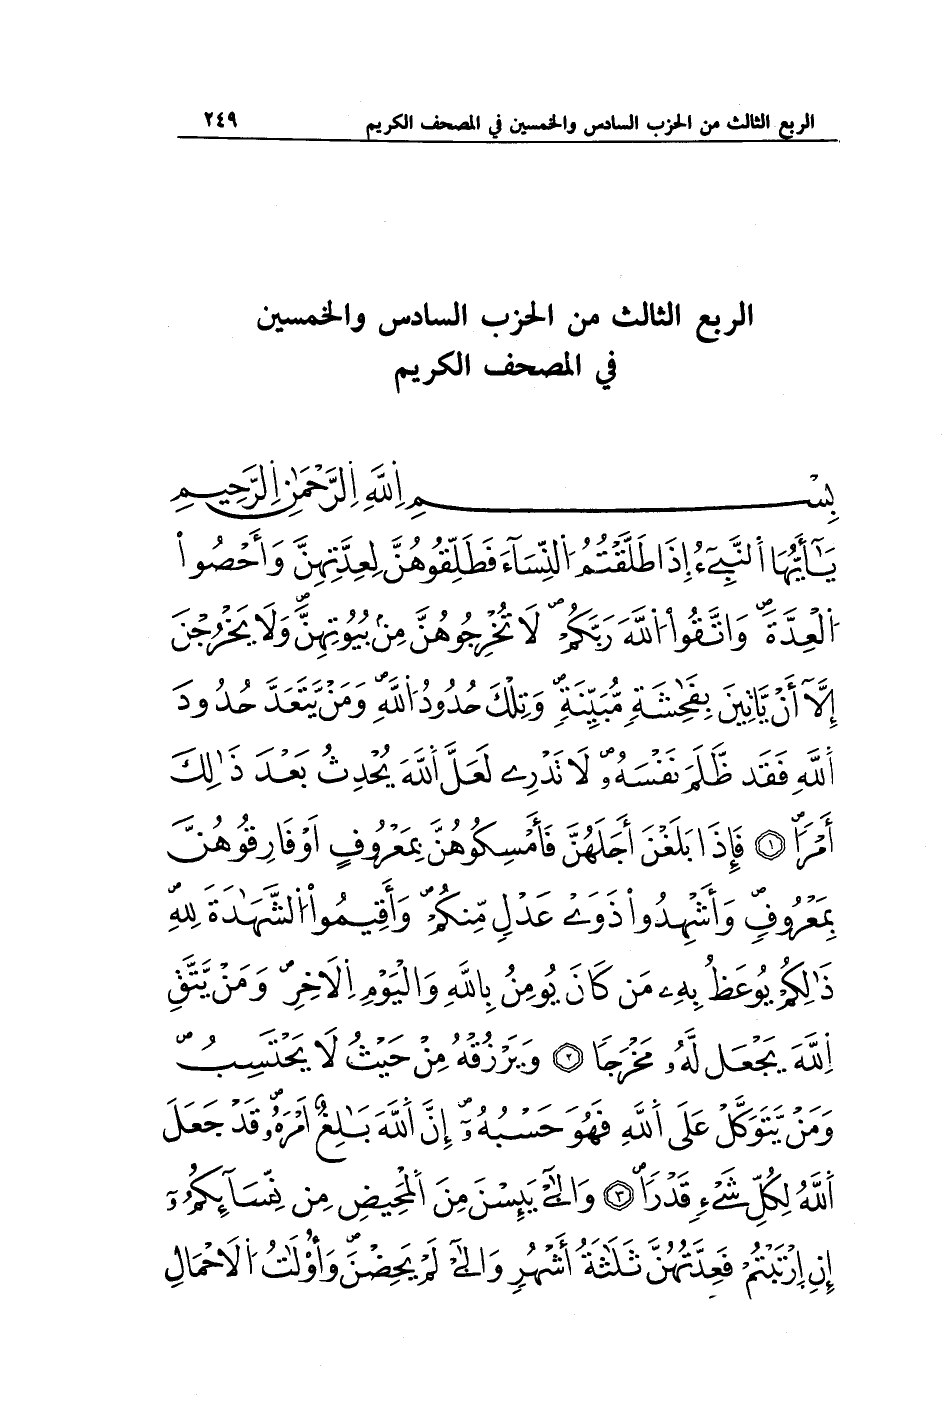 الربع الثالث من الحزب السادس والخمسين في المصحف الكريم ٢٤٩
الربع الثالث من الحزب السادس والخمسين
في المصحف الكريم
بِسْمِ اِ۬للَّهِ اِ۬لرَّحْمَٰنِ اِ۬لرَّحِيمِ
يَٰٓأَيُّهَا اَ۬لنَّبِيٓءُ إِذَا طَلَّقْتُمُ اُ۬لنِّسَآءَ فَطَلِّقُوهُنَّ لِعِدَّتِهِنَّ وَأَحْصُواْ
اُ۬لْعِدَّةَۖ وَاتَّقُواْ اُ۬للَّهَ رَبَّكُمْۖ لَا تُخْرِجُوهُنَّ مِنۢ بُيُوتِهِنَّۖ وَلَا يَخْرُجْنَ
إِلَّآ أَنْ يَّاتِينَ بِفَٰحِشَةٖ مُّبَيِّنَةٖۖ وَتِلْكَ حُدُودُ اُ۬للَّهِۖ وَمَنْ يَّتَعَدَّ حُدُودَ
اَ۬للَّهِ فَقَد ظَّلَمَ نَفْسَهُۥۖ لَا تَدْرِے لَعَلَّ اَ۬للَّهَ يُحْدِثُ بَعْدَ ذَٰلِكَ
أَمْراٗۖ ١ فَإِذَا بَلَغْنَ أَجَلَهُنَّ فَأَمْسِكُوهُنَّ بِمَعْرُوفٍ اَوْ فَارِقُوهُنَّ
بِمَعْرُوفٖۖ وَأَشْهِدُواْ ذَوَےْ عَدْلٖ مِّنكُمْۖ وَأَقِيمُواْ اُ۬لشَّهَٰدَةَ لِلهِۖ
ذَٰلِكُمْ يُوعَظُ بِهِۦ مَن كَانَ يُومِنُ بِاللَّهِ وَالْيَوْمِ اِ۬لَاخِرِۖ وَمَنْ يَّتَّقِ
اِ۬للَّهَ يَجْعَل لَّهُۥ مَخْرَجاٗ ٢ وَيَرْزُقْهُ مِنْ حَيْثُ لَا يَحْتَسِبُۖ
وَمَنْ يَّتَوَكَّلْ عَلَى اَ۬للَّهِ فَهُوَ حَسْبُهُۥٓۖ إِنَّ اَ۬للَّهَ بَٰلِغٌ اَمْرَهُۥۖ قَدْ جَعَلَ
اَ۬للَّهُ لِكُلِّ شَےْءٖ قَدْراٗۖ ٣ وَالَٰٓـِٔے يَئِسْنَ مِنَ اَ۬لْمَحِيضِ مِن نِّسَآئِكُمُۥٓ
إِنِ اِ۪رْتَبْتُمْ فَعِدَّتُهُنَّ ثَلَٰثَةُ أَشْهُرٖ وَالَٰٓـِٔے لَمْ يَحِضْنَۖ وَأُوْلَٰتُ اُ۬لَاحْمَالِ